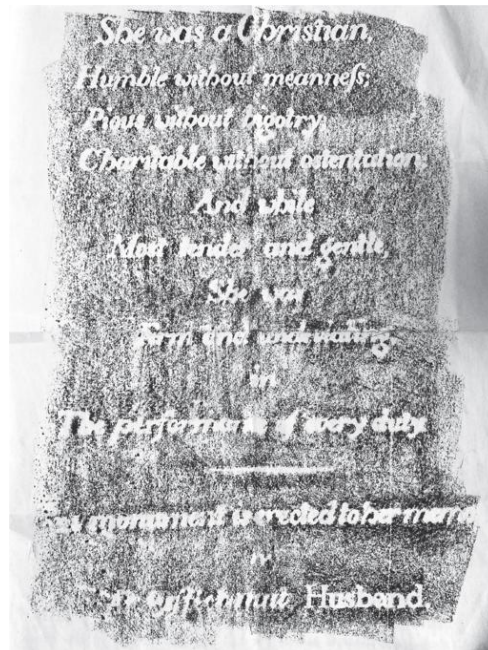 She was a Christian,
Humble without meanneſs;
Pious without bigotry,
Charitable without ostentation;
And while
Most tender and gentle,
She was
Firm and undeviating,
in
The performance of every duty.
monument is erected to her
affectionate Husband.